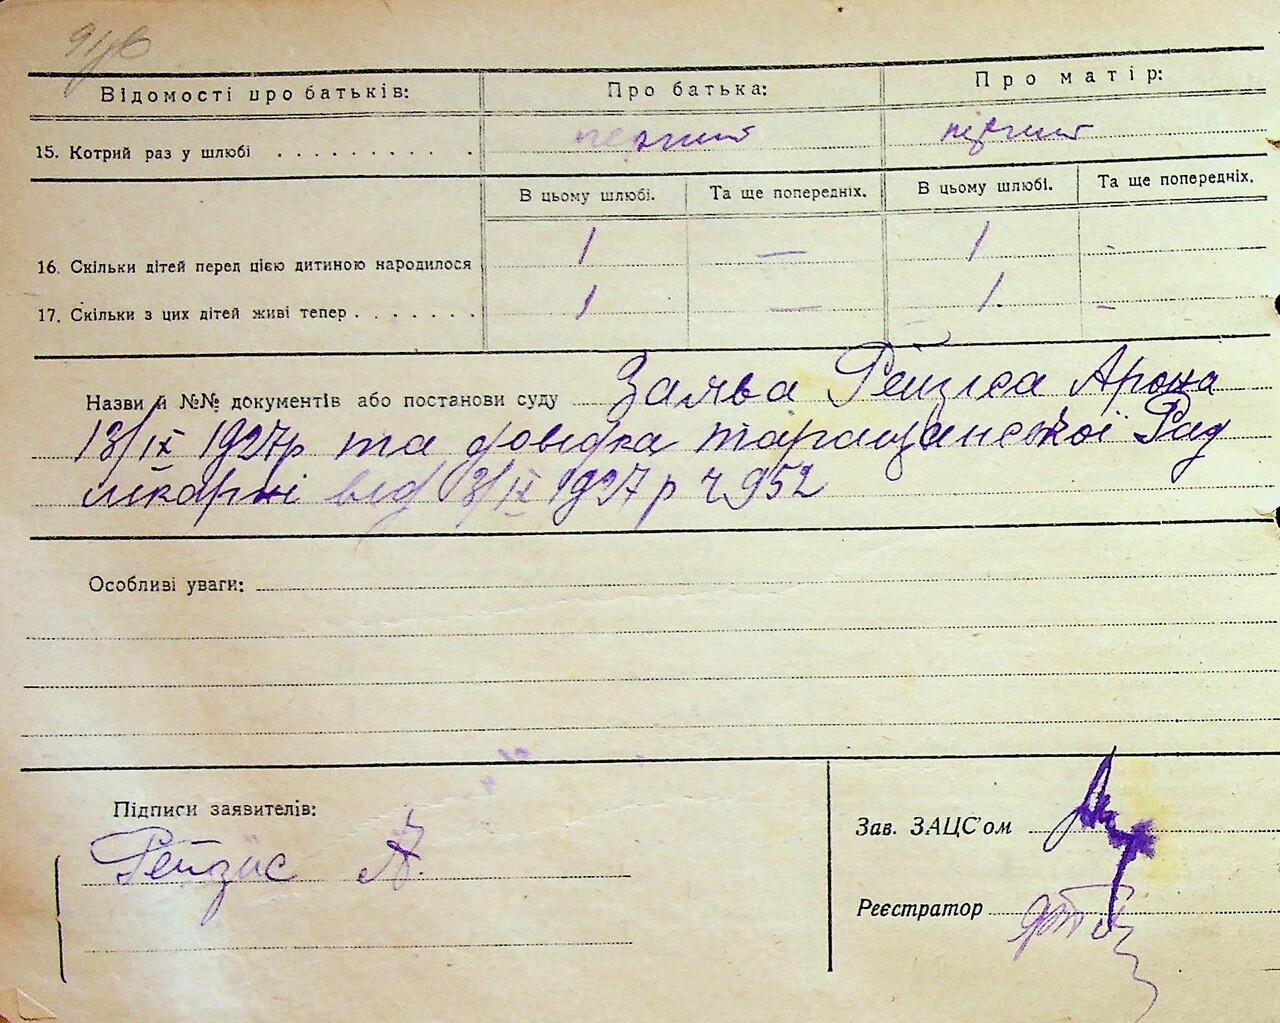 Відомості про батьків: Про батька: Про матір:
15. Котрий раз у шлюбі . . . . . . . . . . . первий первий
В цьому шлюбі. Та ще попередніх. В цьому шлюбі. Та ще попередніх.
16. Скільки дітей перед цією дитиною народилося 1 — 1 -
17. Скільки з цих дітей живі тепер . . . . . . . 1 — 1. -
Назви й №№ документів або постанови суду Заява Рейзіса Арона
13/ІХ 1927р та довідка таращанської Рад
лікарні від 13/ІХ 1927 р ч 952
Особливі уваги:
Підписи заявителів:
Рейзіс А.
Зав. ЗАЦС'ом
Реєстратор